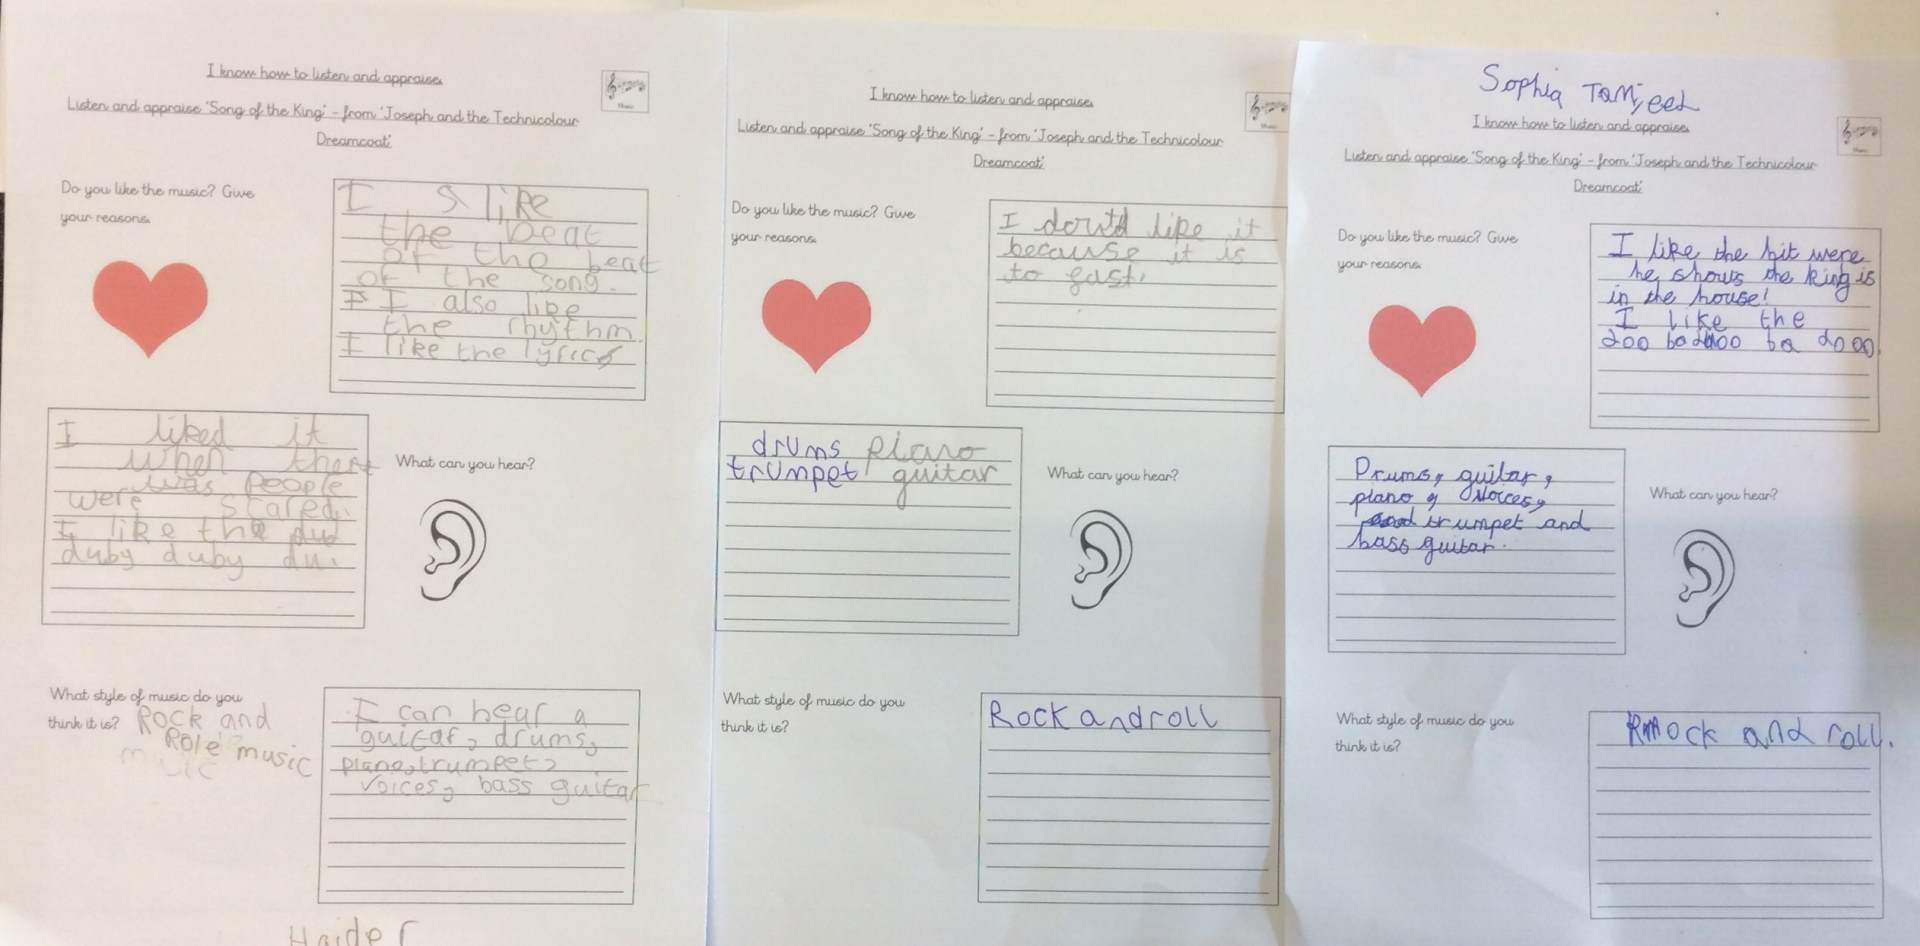 I know how to listen and appraise.
Listen and appraise 'Song of the King' - from 'Joseph and the Technicolour
Dreamcoat'
Do you like the music? Give
your reasons.
I like
the beat
of the beat
of the song.
I also like
the rhythm.
I like the lyrics
I liked it
when there
was people
were scared.
I like the dud
duby duby du.
What can you hear?
What style of music do you
think it is? Rock and
Role music
music
I can hear a
guitar, drums,
piano, trumpet,
voices, bass guitar
Haider
I know how to listen and appraise.
Listen and appraise 'Song of the King' - from 'Joseph and the Technicolour
Dreamcoat'
Do you like the music? Give
your reasons.
I dont like it
because it is
to fast.
drums piano
trumpet guitar
What can you hear?
What style of music do you
think it is?
Rock and roll
Sophia Tanjeet
I know how to listen and appraise.
Listen and appraise 'Song of the King' - from 'Joseph and the Technicolour
Dreamcoat'
Music
Do you like the music? Give
your reasons.
I like the bit were
he shows the king is
in the house!
I like the
doo ba doo ba dooo
Drums, guitar,
piano, voices,
trumpet and
bass guitar.
What can you hear?
What style of music do you
think it is?
Rock and roll.